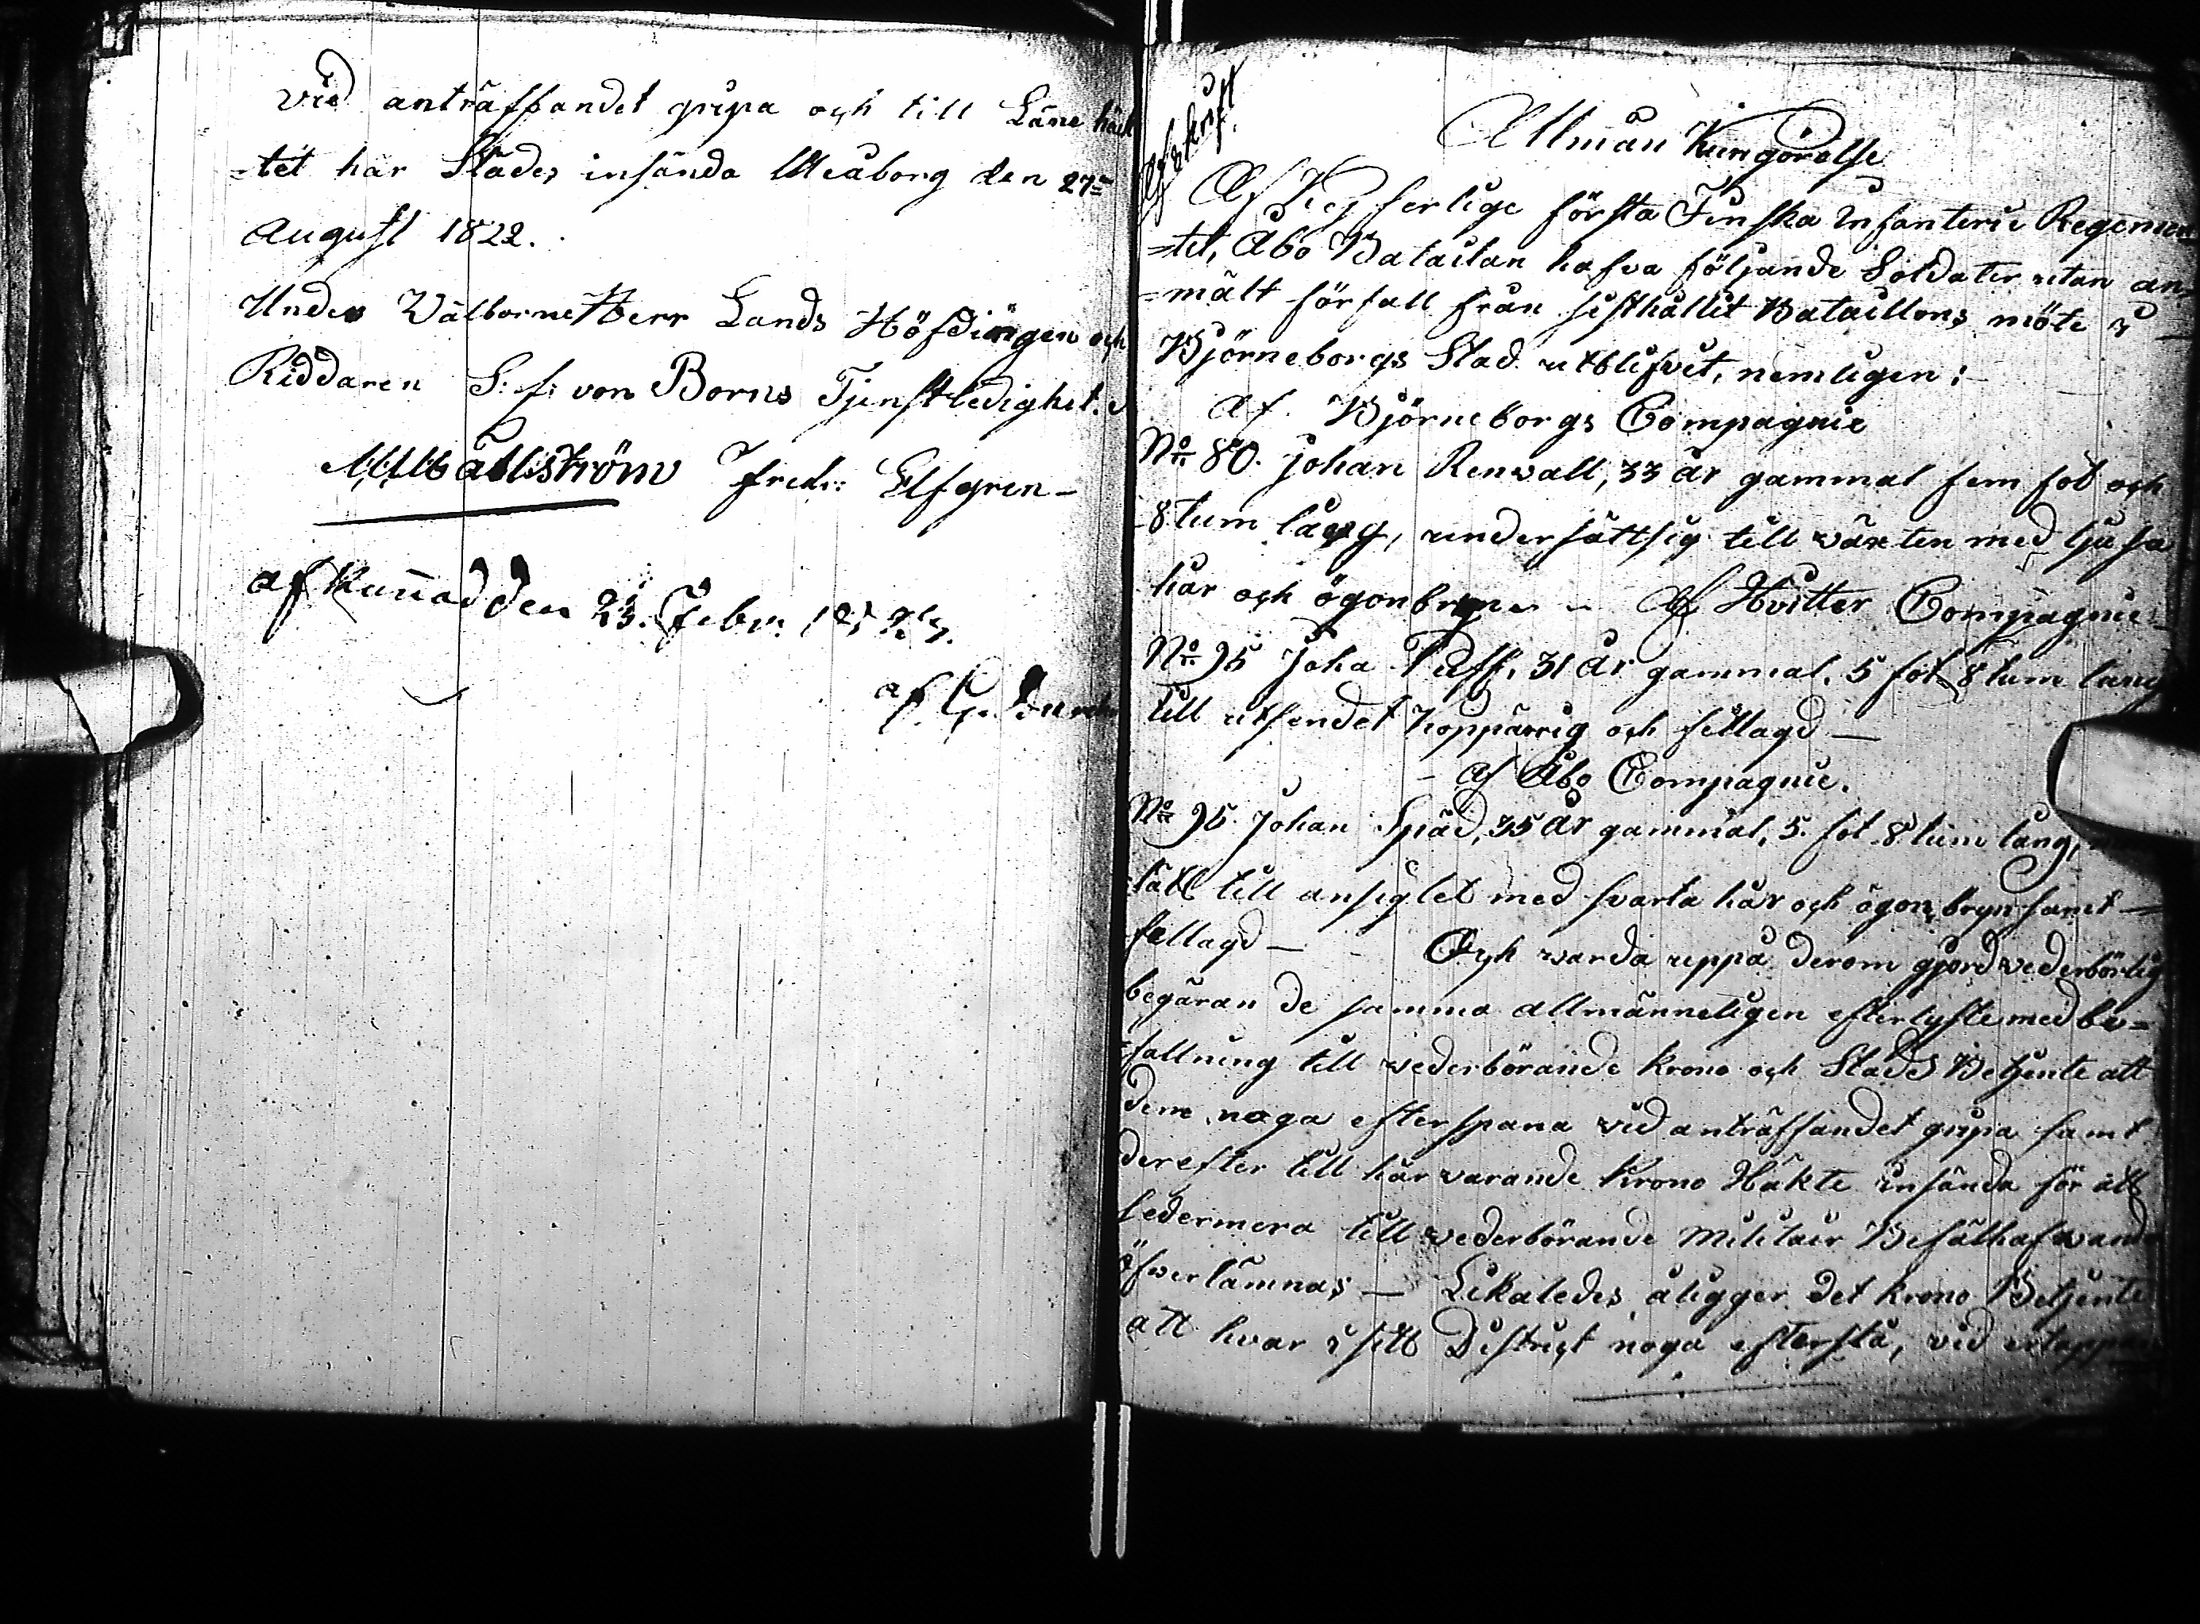 vid anträffandet gripa och till Läne häck
=tet här Stades insända Uleåborg den 27=
August 1822.
Under Välborne Herr Lands Höfdingen och
Riddaren S: f: von Borns Tjenstledighet.
Wåhlström Fredr: Elfgren-
af Kunnad den 23. Febr.
af
Afskrift.
Allmän Kungörelse
Af Kejserlige första Finska Infanterie Regemen
=tet, Åbo Bataillan hafva följande Soldater utan an-
=mält förfall från sisthållit Bataillons möte i
Björneborgs Stad utblifvit, nemligen:
Af Björneborgs Compagnie
No 80. Johan Renvall, 33 år gammal fem fot och
8 tum lång, undersättsig till växten med ljusa
hår och ögonbryn – Af Hvitter Compagnie
No 95 Joha Puff, 31 år gammal, 5 fot 8 tum lång
till utseendet koppärrig och fetlagd —
– Af Åbo Compagnie.
No 95. Johan Späd, 35 år gammal, 5. fot 8 tum lång,
=lätt till ansigtet med svarta hår och ögonbryn samt —
fetlagd — Och varda uppå derom gjord vederbörlig
begäran de samma allmänneligen efterlyste med be=
=fallning till vederbörande krono och Stads Betjente att
dem noga efterspana vid anträffandet gripa samt
derefter till här varande Krono Häkte insända för att
sedermera till vederbörande Militair Befälhafwande
öfverlämnas — Likaledes åligger det krono Betjente
att hvar i sitt District noga efterslå, vid